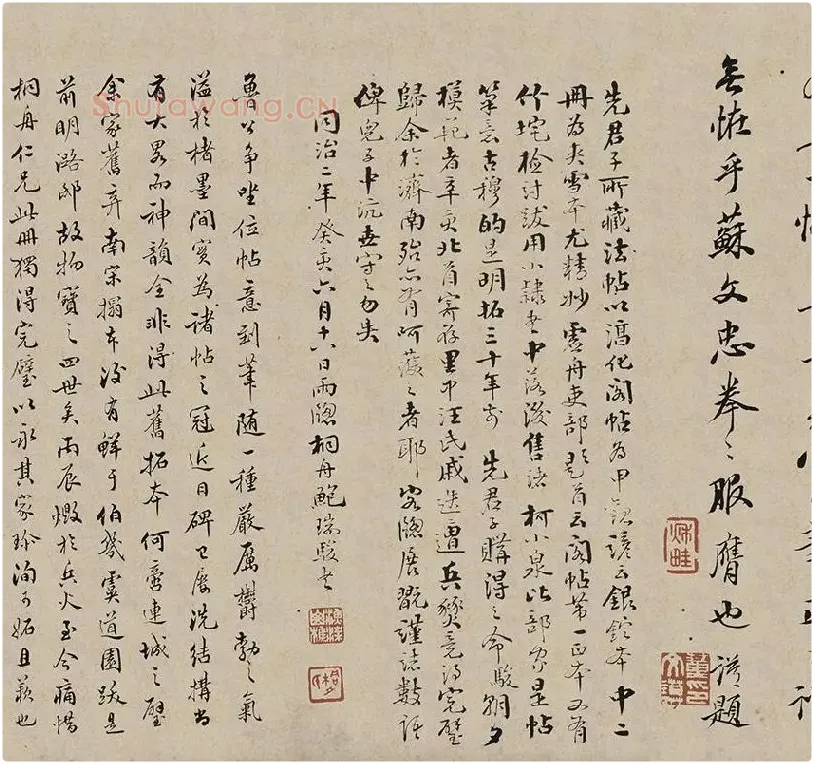 無恠乎蘇文忠拳〻服膺也 謹題
先君子所藏法帖以淳化閣帖為甲觀諺云銀錠本中二
冊為夾雪本尤精妙虛舟吏部題首云閣帖第一正本又有
竹垞檢討跋用小隸書中落後售諸柯小泉比部家是帖
筆意古穆的是明拓三十年前 先君子購得之命駿朝夕
模範者辛亥北首寄存里中汪氏戚迭遭兵燹竟得完璧
歸余於濟南殆亦有呵護之者耶客牕展翫謹誌數語
俾兒子中沆世守之勿失
同治二年癸亥六月十六日雨牕桐舟鮑瑞駿書
魯公争坐位帖意到筆隨一種嚴厲鬱勃之氣
溢於楮墨間實為諸帖之冠近日碑已屢洗結構尚
有大畧而神韻全非得此舊拓本何啻連城之璧
余家舊弆南宋搨本後有鮮于伯幾虞道園跋是
前明潞邸故物寶之四世矣丙辰燬於兵火至今痛惜
桐舟仁兄此冊獨得完璧以永其家珍洵可妬且羨也
Shufawang.CN